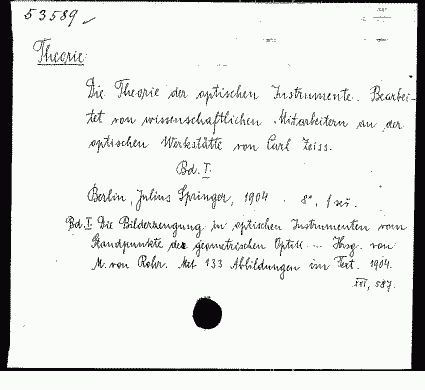 53589
Theorie
Die Theorie der optischen Instrumente. Bearbei-
tet von wissenschaftlichen Mitarbeitern an der
optischen Werkstätte von Carl Zeiss.
Bd. I.
Berlin, Julius Springer, 1904. 8°, 1
Bd. I Die Bilderzeugung in optischen Instrumenten vom
Standpunkte der geometrischen Optik ... Hrsg. von
M. von Rohr. Mit 133 Abbildungen im Text. 1904.
587.